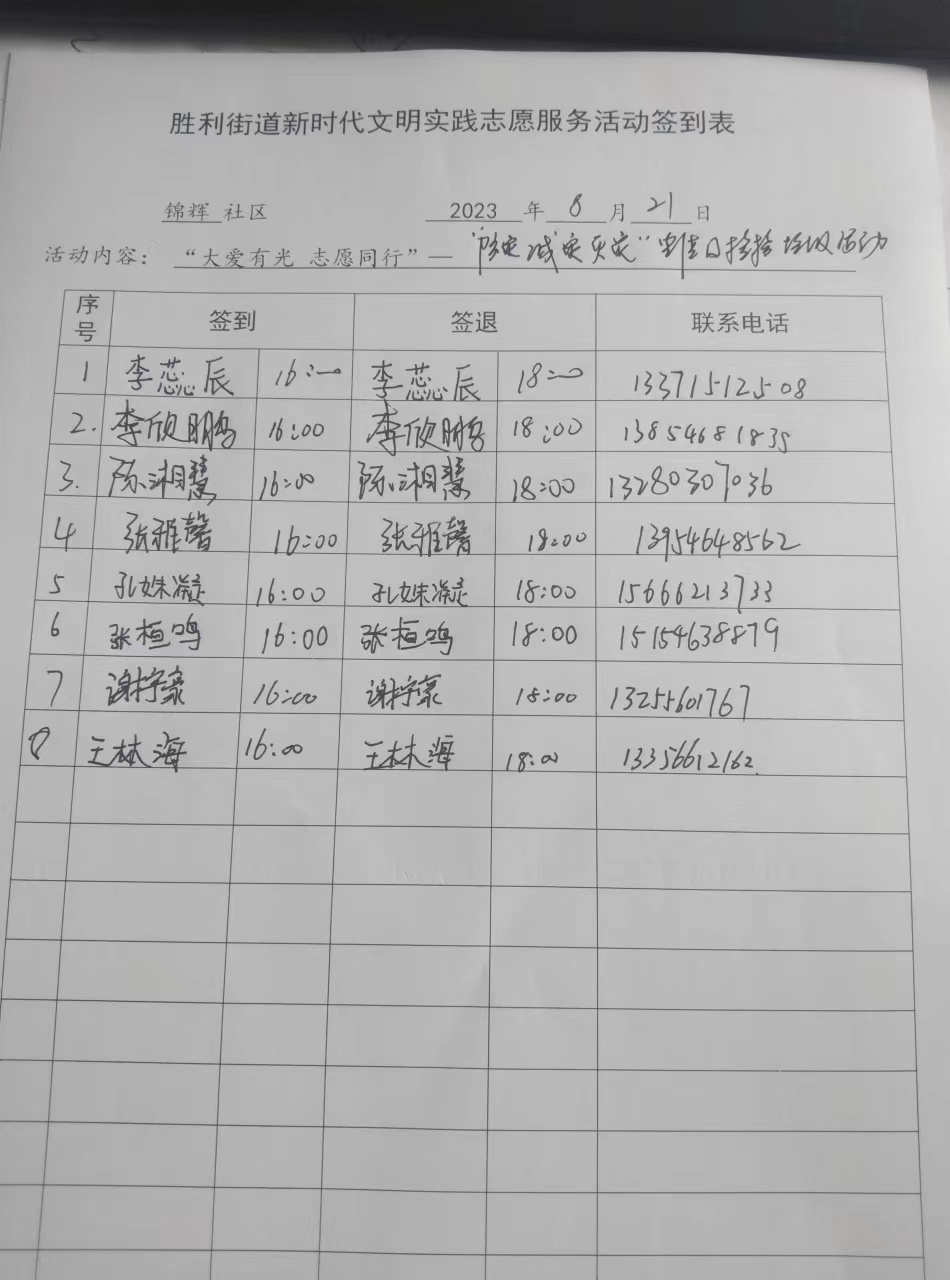 胜利街道新时代文明实践志愿服务活动签到表
锦辉 社区 2023 年 8 月 21 日
活动内容： “大爱有光 志愿同行”— “防灾减灾灭灾” 日捡拾垃圾活动
序号 签到 签退 联系电话
1 李蕊辰 16:00 李蕊辰 18:00 13371512508
2. 李欣鹏 16:00 李欣鹏 18:00 13854681835
3. 陈湘慧 16:00 陈湘慧 18:00 13280307036
4 张雅馨 16:00 张雅馨 18:00 13954648562
5 孔姝凝 16:00 孔姝凝 18:00 15666213733
6 张桓鸣 16:00 张桓鸣 18:00 15154638879
7 谢梓豪 16:00 谢梓豪 18:00 13255601767
8 王林海 16:00 王林海 18:00 13356612162